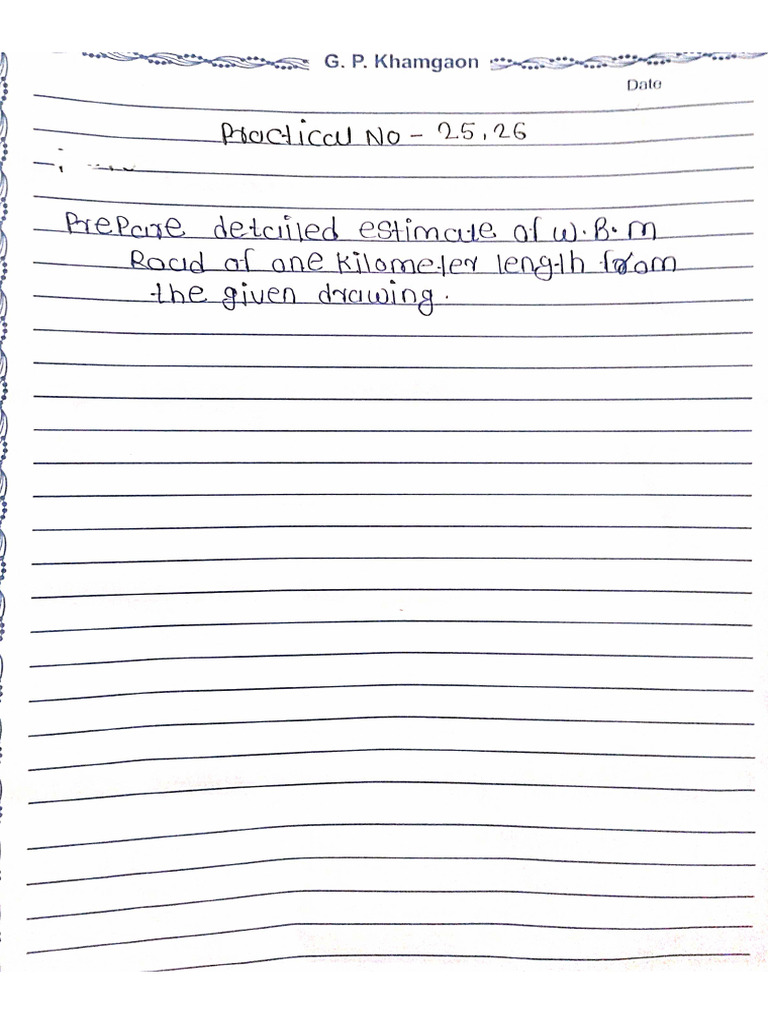 G. P. Khamgaon
Date
Practical No - 25,26
Prepare detailed estimate of W.B.M
Road of one kilometer length from
the given drawing.